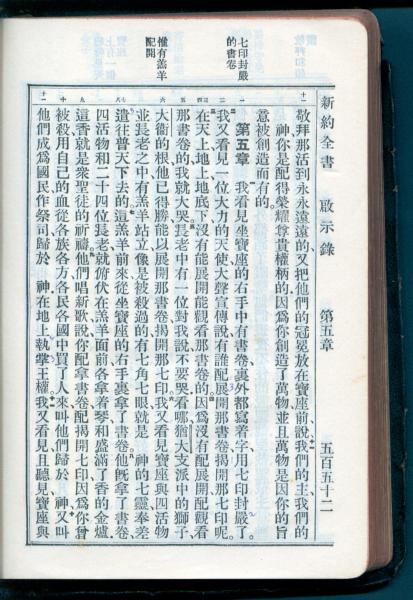 新約全書 啟示錄 第五章 五百五十二
七印封嚴
的書卷
惟有羔羊
配開
敬拜那活到永永遠遠的、又把他們的冠冕放在寶座前說、我們的主、我們的
神、你是配得榮耀尊貴權柄的、因爲你創造了萬物、並且萬物是因你的旨
意被創造而有的。
第五章 我看見坐寶座的右手中有書卷、裏外都寫着字、用七印封嚴了。
我又看見一位大力的天使、大聲宣傳說、有誰配展開那書卷、揭開那七印呢。
在天上、地上、地底下、沒有能展開能觀看那書卷的。因爲沒有配展開配觀看
那書卷的、我就大哭。長老中有一位對我說、不要哭、看哪、猶大支派中的獅子、
大衞的根、他已得勝、能以展開那書卷、揭開那七印。我又看見寶座與四活物
並長老之中、有羔羊站立、像是被殺過的、有七角七眼、就是 神的七靈、奉差
遣往普天下去的。這羔羊前來、從坐寶座的右手裏拿了書卷。他旣拿了書卷、
四活物和二十四位長老、就俯伏在羔羊面前、各拿着琴、和盛滿了香的金爐、
這香就是衆聖徒的祈禱。他們唱新歌說、你配拿書卷、配揭開七印、因爲你曾
被殺、用自己的血從各族各方各民各國中買了人來、叫他們歸於 神、又叫
他們成爲國民作祭司歸於 神、在地上執掌王權。我又看見、且聽見、寶座與